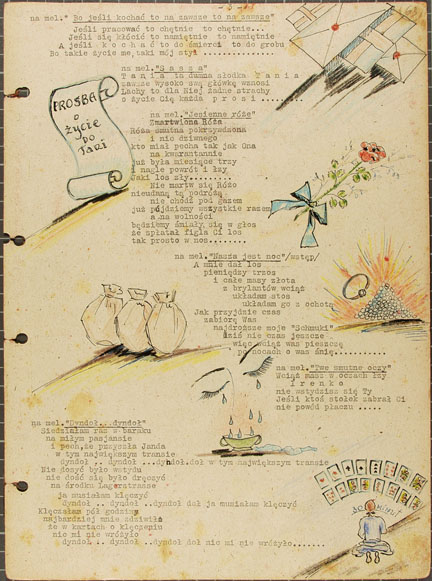 na mel." Bo jeśli kochać to na zawsze to na zawsze"
Jeśli pracować to chętnie to chętnie...
Jeśli się kłócić to namiętnie to namiętnie
A jeśli k o c h a ć to do śmierci to do grobu
Bo takie życie me, taki mój styl
na mel." S a s z a "
T a n i a ta dumna słodka T a n i a
zawsze wysoko swą główkę wznosi
Lachy to dla Niej żadne strachy
o życie Cię każda p r o s i ........
PROSBA
o
życie
do
Tani
na mel."Jesienne róże"
Zmartwiona Róża
Róża smutna pokrzywdzona
i nic dziwnego
kto miał pecha tak jak Ona
na kwarantannie
już była miesięce trzy
i nagle powrót i łzy
Jaki los zły........
Nie martw się Różo
nieudaną tą podróżą
nie chodź pod gazem
już pójdziemy wszystkie razem
a na wolności
będziemy śmiały się w głos
że spłatał figla Ci los
tak prosto w nos........
na mel."Nasza jest noc"/wstęp/
A mnie dał los
pieniędzy trzos
i całe masy złota
z brylantów wciąż
układam stos
układam go z ochotą
Jak przyjdzie czas
zabiorę Was
najdroższe moje "Schmuki"
Dziś nie czas jeszcze
więc wciąż was pieszczę
po nocach o was śnię...........
na mel."Twe smutne oczy"
Wciąż masz w oczach łzy
I r e n k o
nie wstydzisz się Ty
Jeśli ktoś stołek zabrał Ci
nie powód płaczu .....
na mel."Dyndoł...dyndoł"
Siedziałam raz w baraku
na miłym pasjansie
i pech, że przyszła Janda
w tym największym transie
dyndoł .. dyndoł ...dyndoł.doł w tym największym transie
Nie dosyć było wstydu
nie dość się było dręczyć
na środku Lagerstrasse
ja musiałam klęczyć
dyndoł .. dyndoł ..dyndoł doł ja musiałam klęczyć
Klęczałam pół godziny
najbardziej mnie zdziwiło
że w kartach o klęczeniu
nic mi nie wróżyło
dyndoł .. dyndoł ..dyndoł doł nic mi nie wróżyło.......
30 minut